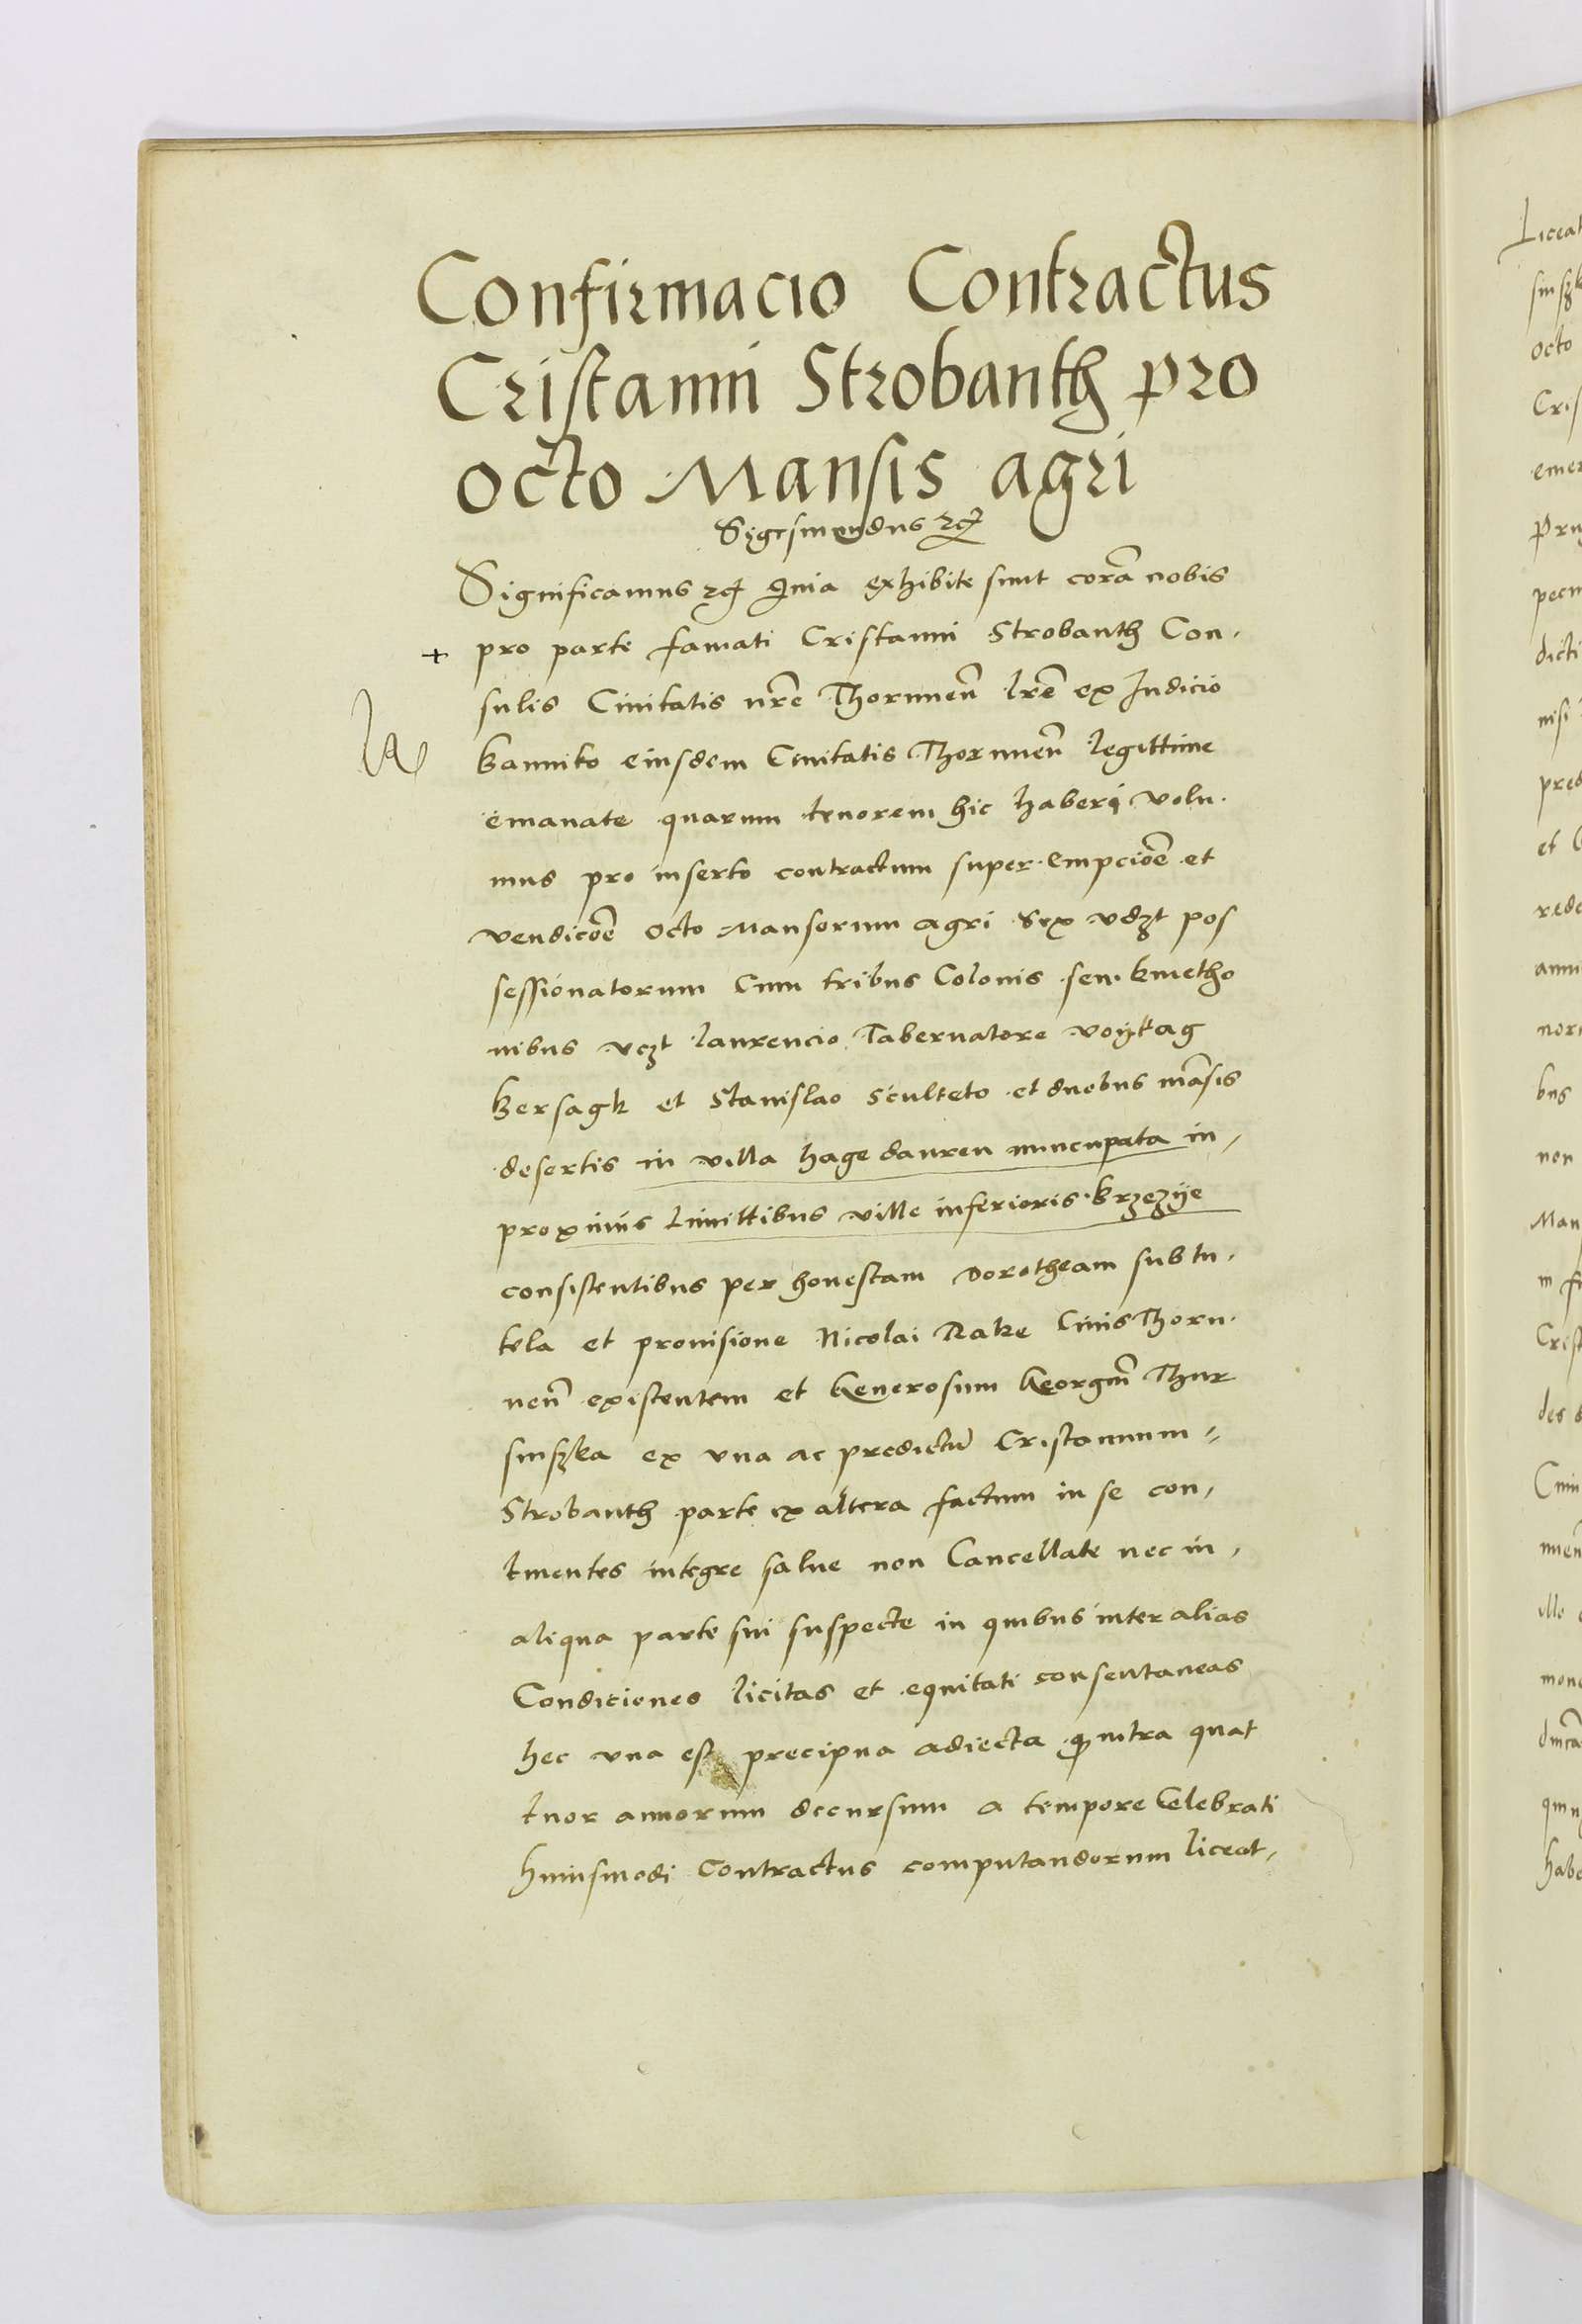 Confirmacio Contractus
Cristanni Strobanth pro
octo Mansis agri
Sigismundus rc̃
Significamus rc̃ Quia exhibite sunt corã nobis
pro parte famati Cristanni Strobanth Con-
sulis Civitatis nr̃e Thorunen̄ lr̃e ex Judicio
bannito eiusdem Civitatis Thorunen̄ legittime
emanate quarum tenorem hic haberi volu-
mus pro inserto contractum super empcioẽ et
vendicoẽ octo Mansorum agri Sex vdzt pos
sessionatorum Cum tribus Colonis seu kmetho
nibus vczt laurencio Tabernatore voyttag
kersagk et Stanislao Sculteto et duobus mãsis
desertis in villa hage dauren nuncupata in-
proximis Limittibus ville inferioris krzezije
consistentibus per honestam Dorotheam sub tu-
tela et provisione Nicolai Rake Civis Thoru-
nen̄ existentem et Generosum Georgiũ Thur
sinszka ex vna ac predictũ Cristannum
Strobanth parte ex altera factum in se con-
tinentes integre salue non Cancellate nec in-
aliqua parte sui suspecte in quibus inter alias
Condiciones licitas et equitati consentaneas
hec vna est precipua adiecta qꝫ intra quat
tuor annorum decursum a tempore Celebrati
huiusmodi Contractus computandorum liceat-
Liceat
octo
Cris
emer
pecu
dicti
nisi
pred
anni
bus
non
Man
Crist
mone
habe